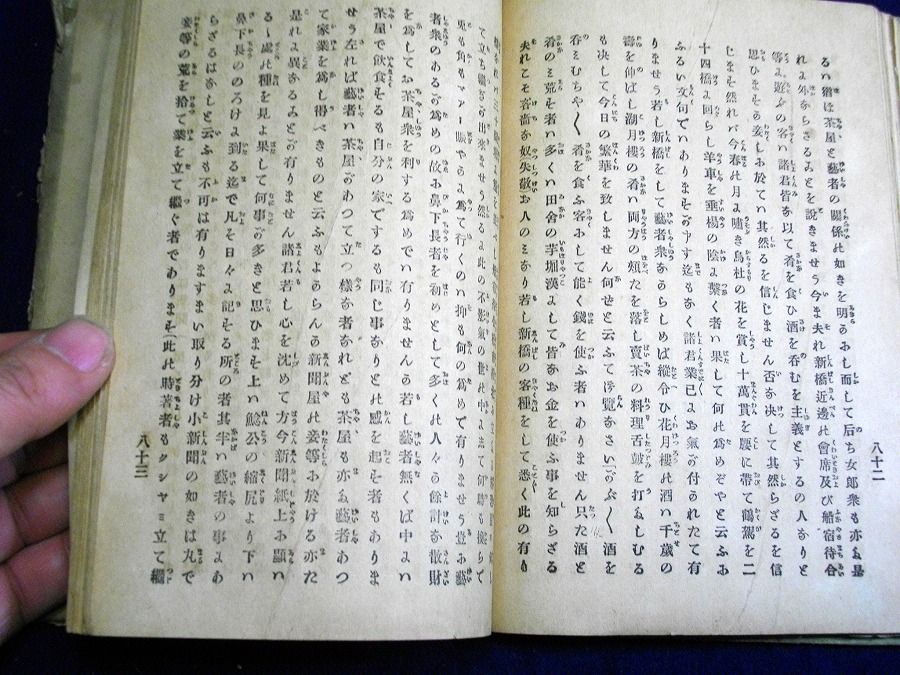 八十二
るハ猶ほ茶屋と藝者の關係の如きを明かおし而して后ち女郎衆も亦た是
れよ外からざるみとを說きませう今ま夫れ新橋近邊の會席及び船宿待合
等よ遊ぶの客ハ諸君皆な以て肴を食ひ酒を呑むを主義とするの人なりと
思ひますか妾しお於てハ其然るを信じません否な决して其然らざるを信
じまそ然れバ今春の月よ嘯き烏杜の花を賞し十萬貫を腰に帶て鶴駕を二
十四橋よ回らし羊車を垂楊の陰よ繫く者ハ果して何の為めぞやと云ふお
ふるい文句でハありまそがやす迄もなく諸君業已よお氣の付れたて有
りませう若し新橋をして藝者衆なからしめば縱令ひ花月樓の酒ハ千歲の
壽を伸ばし湖月樓の肴ハ両方の頰たを落し賣茶の料理舌鼓を打しむる
も决して今日の繁華を致しません何せと云ふて御覽なさいな〱酒を
呑ミむちや〱肴を食ふ客おして能く錢を使ふ者ハありません只た酒と
肴のミよ荒を者ハ多くハ田舍の芋堀漢よして皆なお金を使ふ事を知らざる
夫れこそ吝嗇な奴失敬な人のミなり若し新橋の客種をして悉く此の有り
て立ち
兎も角もマアー賑やかよ為て行くのハ抑も何の為めで有りませう豈お藝
者衆のあるお為めの故お鼻下長者を初めとして多くの人々る餘計な散財
を為してお茶屋衆を利する為めでハ有りませんか若し藝者無くば中よハ
茶屋で飮食そるも自分の家でするも同じ事なりとの感を起そ者もありま
せう左れば藝者ハ茶屋おあつて立つ樣な者なれども茶屋も亦た藝者あつ
て家業を為し得べきものと云ふもよからんか新聞屋の妾等お於ける亦た
是れよ異なるみとが有りません諸君若し心を沈めて方今新聞紙上お顯ハ
るゝ處の種を見よ果して何事が多きと思ひまそ上ハ鯰公の縮尻より下ハ
鼻下長ののろけよ到る迄で凡そ日々よ記そる所の者其半ハ藝者の事よあ
らざるはなしと云ふも不可は有りますまい取り分け小新聞の如きは丸で
妾等の荒を拾て業を立て繼ぐ者であります此の時著者もクシヤミ立て繼
八十三